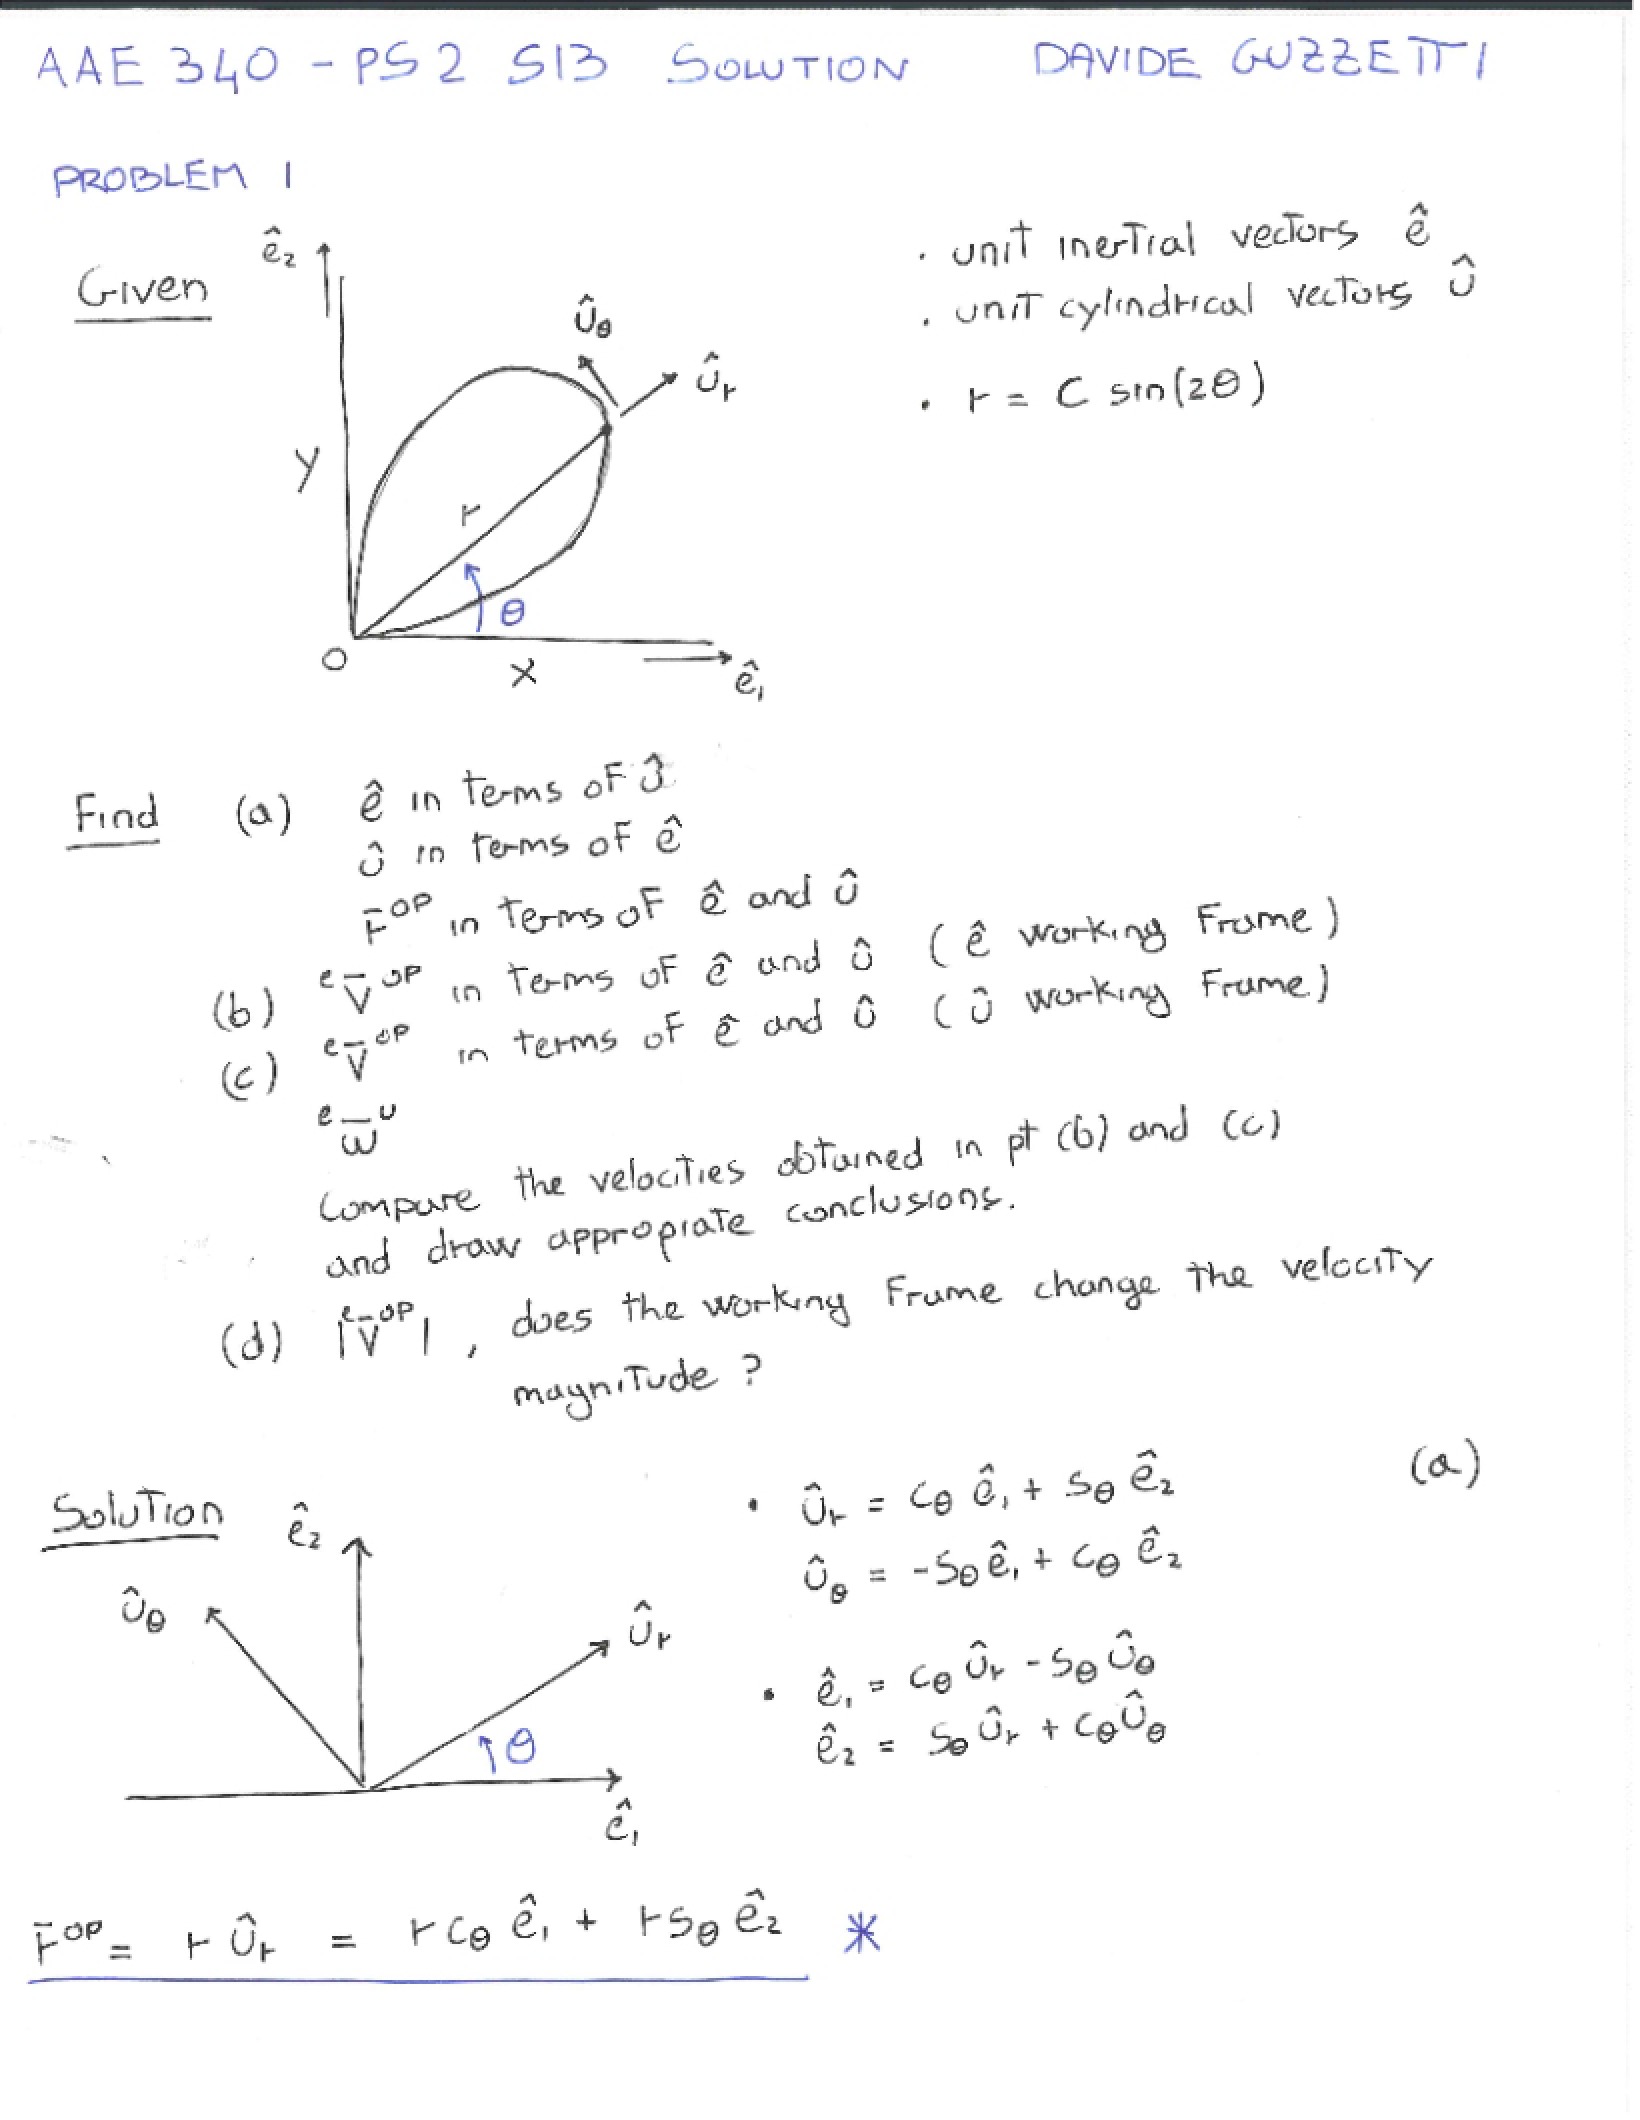 AAE 340 - PS2 S13 SOLUTION DAVIDE GUZZETTI
PROBLEM 1
Given
ê₂
y
r
θ
O
x
ê₁
û_θ
û_r
· unit inertial vectors ê
· unit cylindrical vectors û
· r = C sin(2θ)
Find (a) ê in terms of û
û in terms of ê
r̄^OP in terms of ê and û
(b) ^e v̄^OP in terms of ê and û (ê working Frame)
(c) ^e v̄^OP in terms of ê and û (û working Frame)
^e ω̄^u
Compare the velocities obtained in pt (b) and (c)
and draw appropiate conclusions.
(d) |^e v̄^OP| , does the working Frame change the velocity
magnitude ?
Solution
ê₂
û_θ
û_r
θ
ê₁
(a)
· û_r = cθ ê₁ + sθ ê₂
û_θ = -sθ ê₁ + cθ ê₂
· ê₁ = cθ û_r - sθ û_θ
ê₂ = sθ û_r + cθ û_θ
r̄^OP = r û_r = r cθ ê₁ + r sθ ê₂ *